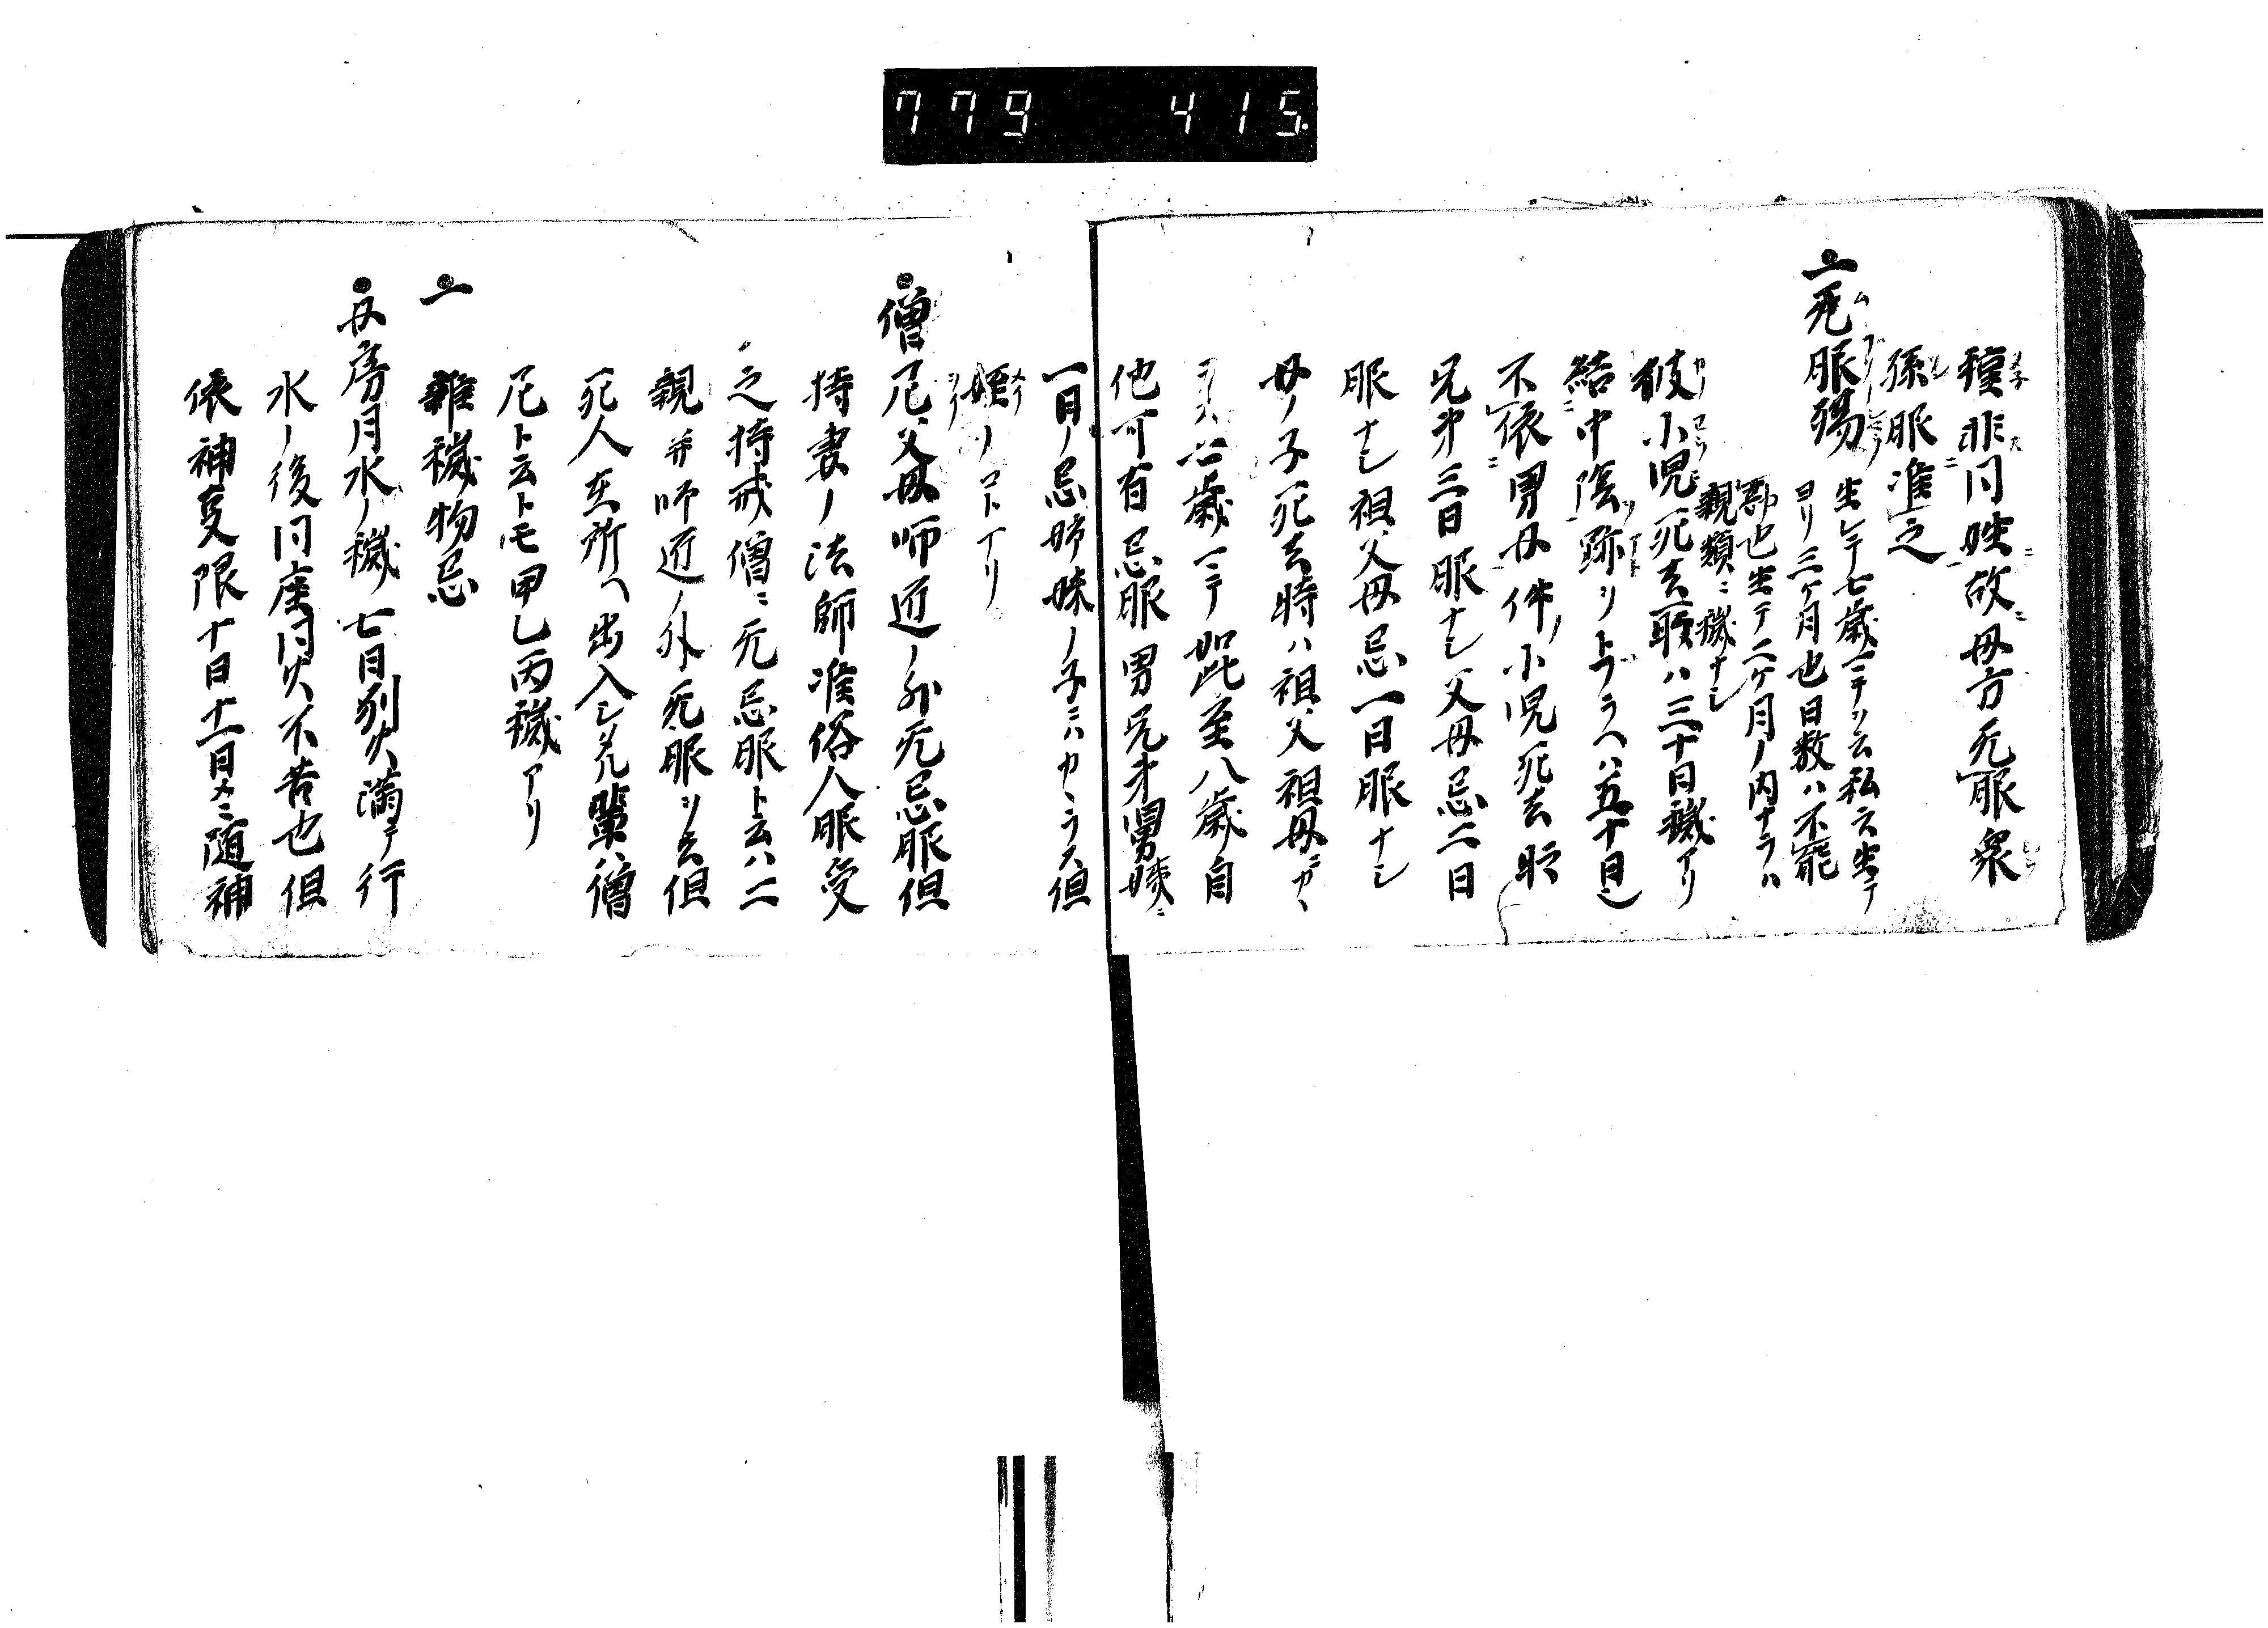 779 415
種非同姓故母方无服衆
孫服准之
一无服殤
生レテ七歳マテヲ云私云生テ
ヨリ三ケ月也日数ハ不能
勘也生テ二ケ月ノ内ナラハ
親類ニ穢ナシ
彼小児死去聴ハ三十日穢アリ
結中陰跡ヲトフラヘハ五十日也
不依男女件小児死去聴
兄弟三日服ナシ父母忌二日
服ナシ祖父母忌一日服ナシ
女ノ子死去時ハ祖父祖母ニカヽ
ラス七歳マテ如此至八歳自
他可有忌服男兄弟舅姨ニ
一日ノ忌姉妹ノ子ニハカヽラス但
姪ノコトナリ
僧尼父母師匠ノ外无忌服但
持妻ノ法師准俗人服受
之持戒僧ニ无忌服ト云ハ二
親并師匠ノ外无服ヲ云但
死人在所ヘ出入シタル輩ハ僧
尼ト云トモ甲乙丙穢アリ
一雑穢物忌
女房月水ノ穢七日別火満テ行
水ノ後同座同火不苦也但
依神変限十日十一日タメニ随神